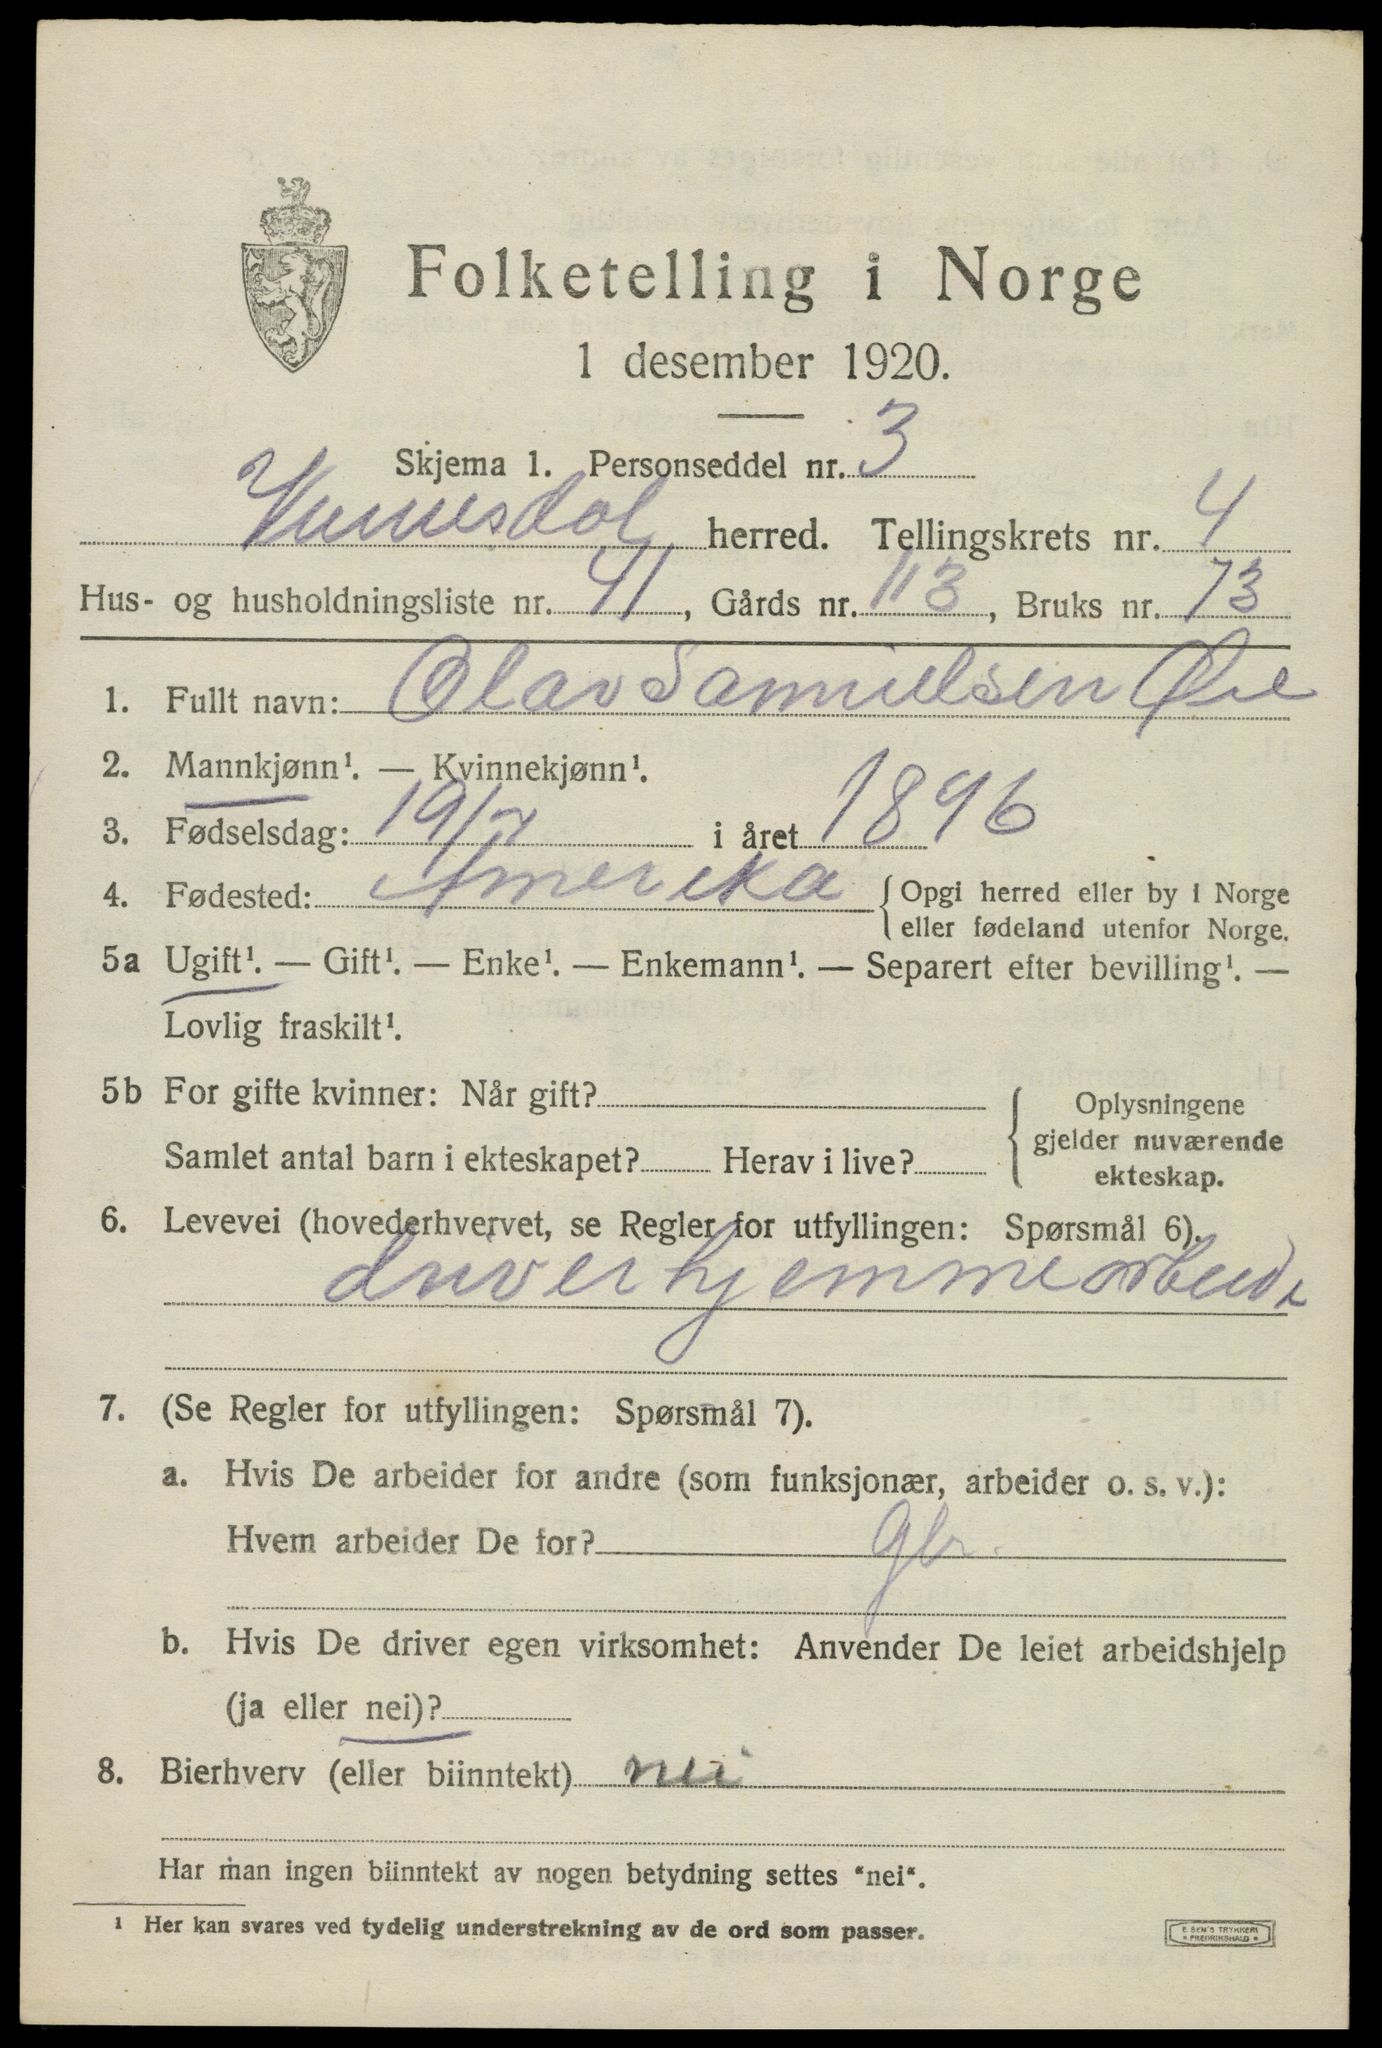 Folketelling i Norge
1 desember 1920.
Skjema 1. Personseddel nr. 3
herred. Tellingskrets nr. 4
Hus- og husholdningsliste nr. 41, Gårds nr. 113, Bruks nr. 73
1. Fullt navn: Olav Samuelsen Øie
2. Mannkjønn¹. — Kvinnekjønn¹.
3. Fødselsdag: 19/7 i året 1896
4. Fødested: Amerika {Opgi herred eller by i Norge
eller fødeland utenfor Norge.
5a Ugift¹. — Gift¹. — Enke¹. — Enkemann¹. — Separert efter bevilling¹. —
Lovlig fraskilt¹.
5b For gifte kvinner: Når gift?
Samlet antal barn i ekteskapet? Herav i live?
{Oplysningene
gjelder nuværende
ekteskap.
6. Levevei (hovederhvervet, se Regler for utfyllingen: Spørsmål 6).
driver hjemmearbeide
7. (Se Regler for utfyllingen: Spørsmål 7).
a. Hvis De arbeider for andre (som funksjonær, arbeider o. s. v.):
Hvem arbeider De for? gbr.
b. Hvis De driver egen virksomhet: Anvender De leiet arbeidshjelp
(ja eller nei)?
8. Bierhverv (eller biinntekt) nei
Har man ingen biinntekt av nogen betydning settes "nei".
¹ Her kan svares ved tydelig understrekning av de ord som passer.
E. SEM'S TRYKKERI
FREDRIKSHALD